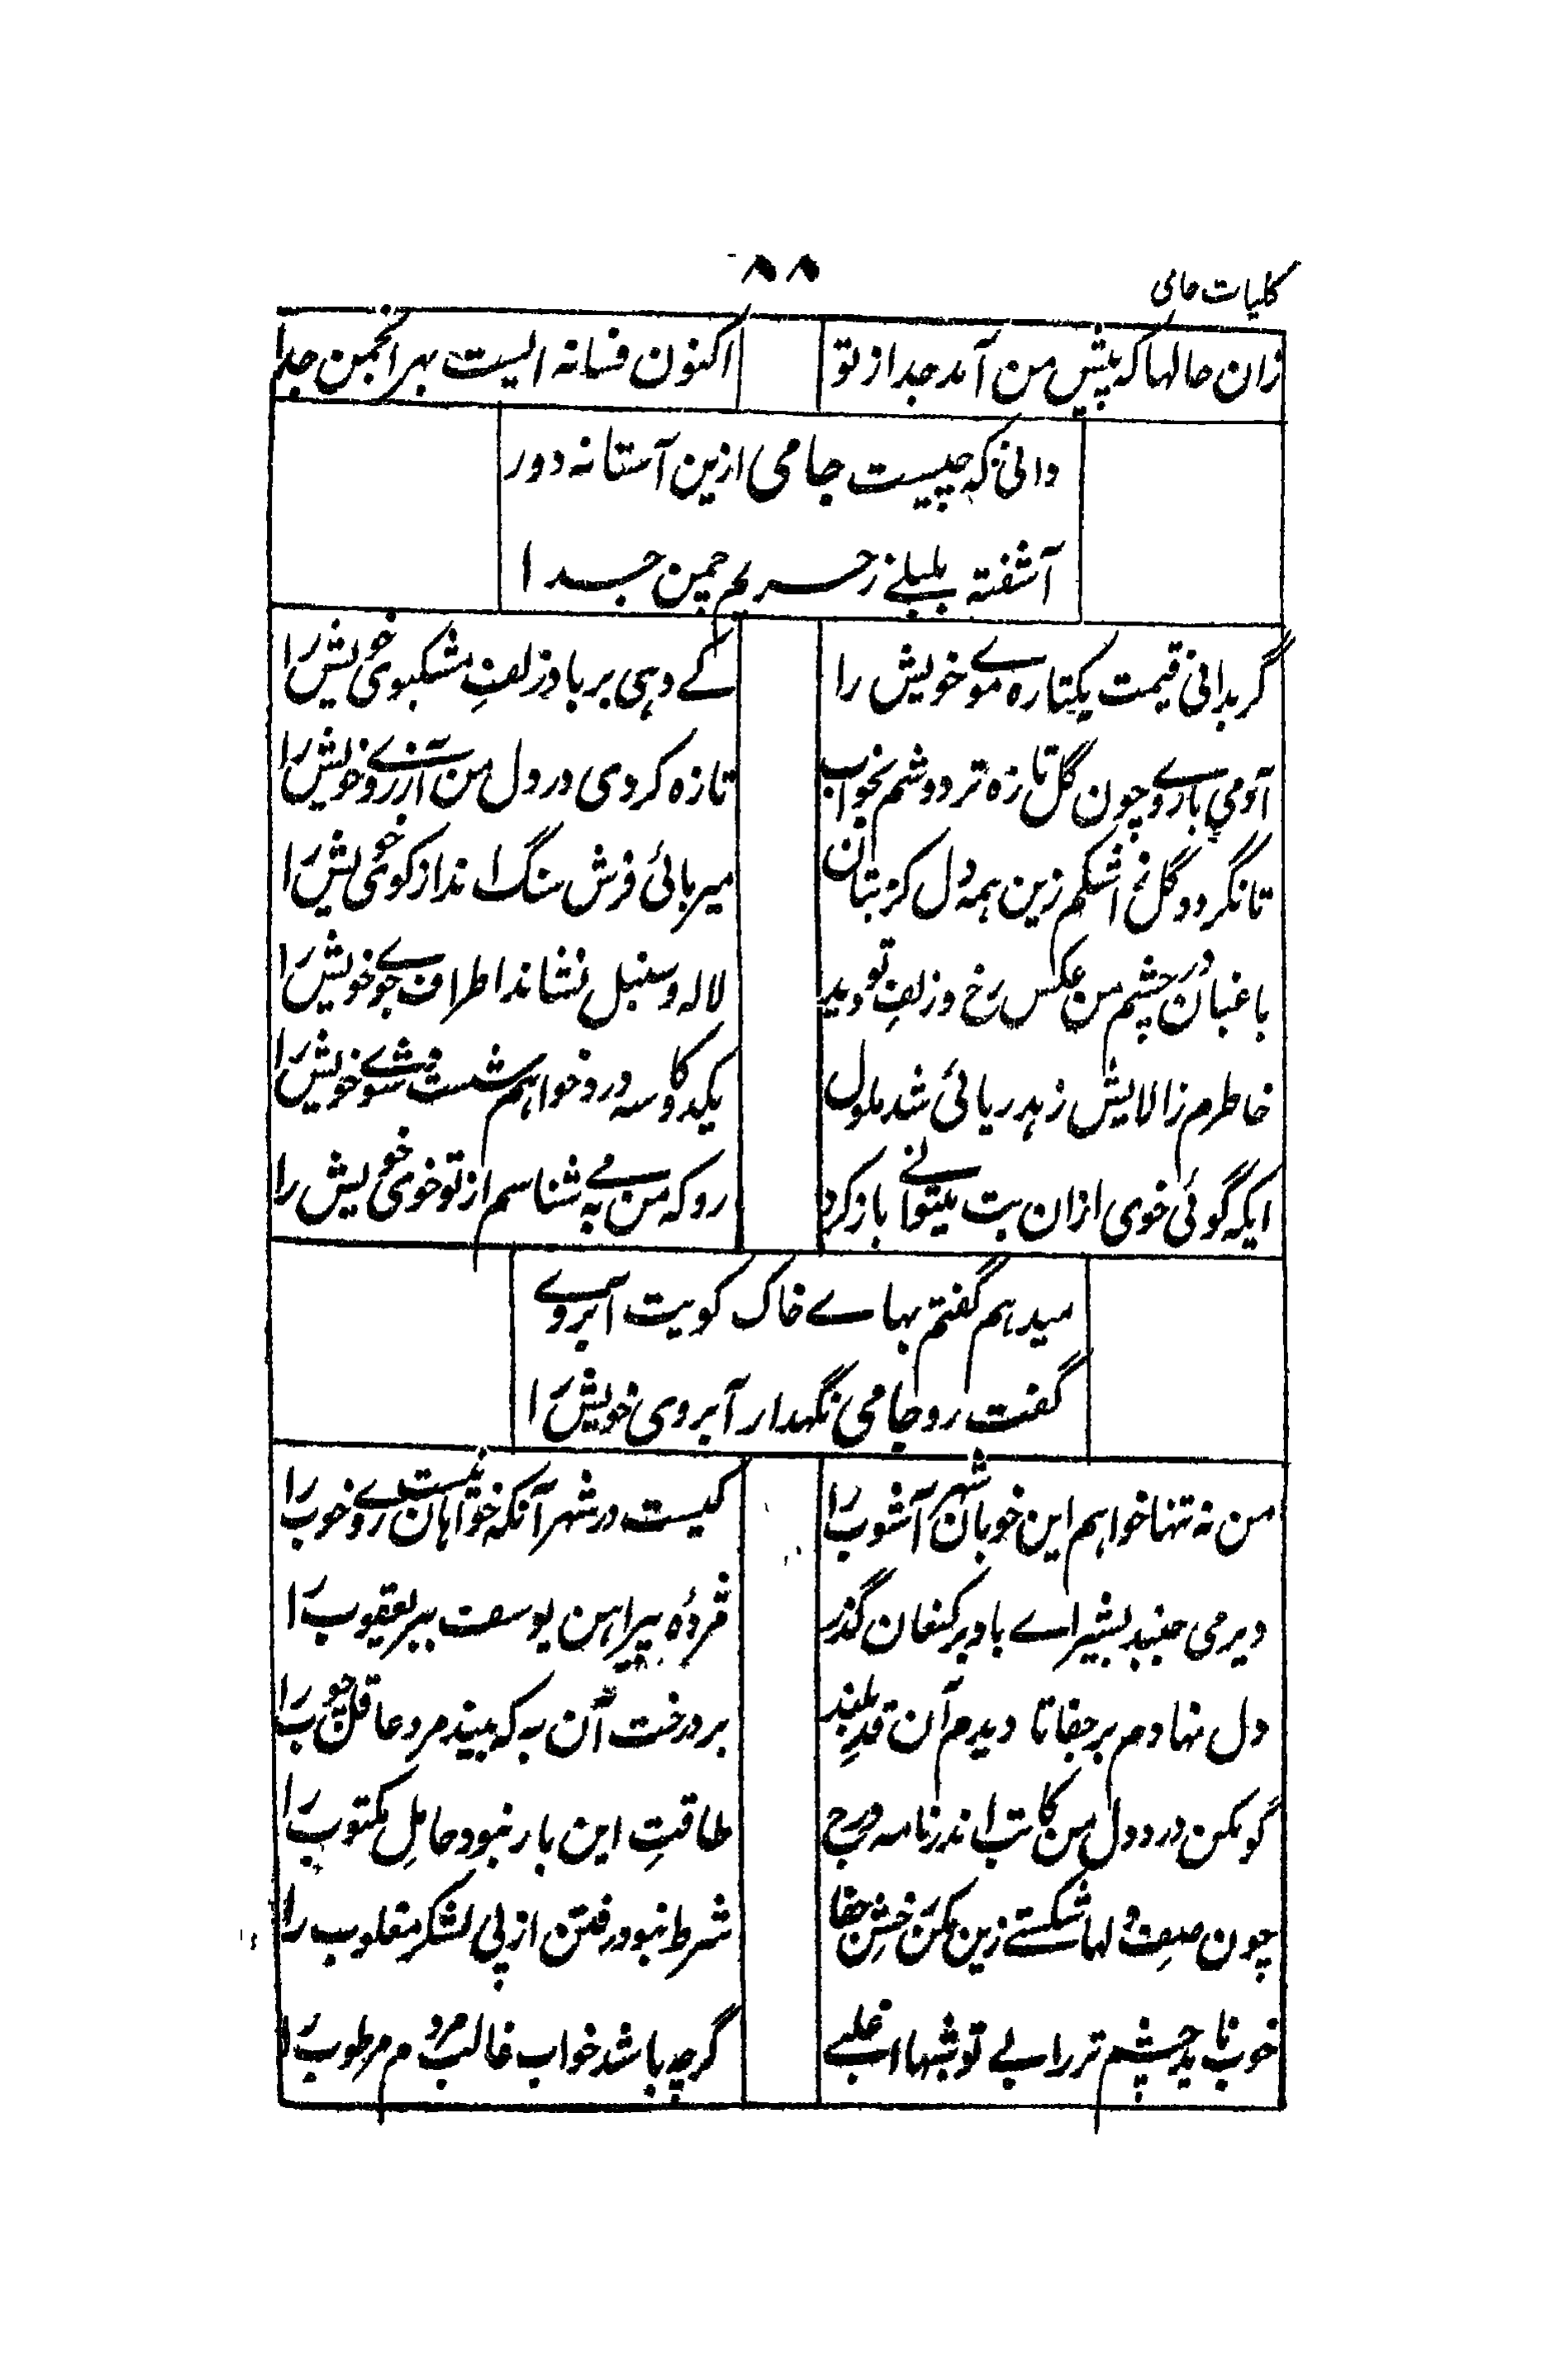 کلیات جامی
۸۸
زان حالها که پیش من آمد جدا ز تو
اکنون فسانه ایست بهر انجمن جدا
دانی که چیست جامی ازین آستانه دور
آشفته بلبلے ز حریم چمن جدا
گر بدانی قیمت یکتاره موے خویش را
کے دهی بر باد زلفِ مشکبوی خویش را
آمدی با روے چون گل تازه تر دوشم بخواب
تازه کردی در دل من آرزوے خویش را
تا نگردد گل نم اشکم زین همه دل کز بتان
میربائی فرش سنگ انداز کوی خویش را
باغبان در چشم من عکس رخ و زلفِ تو دید
لاله و سنبل نشاند اطراف جوے خویش را
خاطرم ز الایش زهد ریائی شد ملول
یکدو کاسه درد خواهم شست و شوے خویش را
ایکه گوئی خوی ازان بت میتوانے باز کرد
رو که من مے به شناسم از تو خوی خویش را
میدهم گفتم بهاے خاک کویت آبروے
گفت رو جامی نگهدار آبروی خویش را
من نه تنها خواهم این خوبان شهر آشوب را
کیست در شهر آنکه خواهان نیست روے خوب را
دیر می جنبد بشیر اے باد بر کنعان گذر
مژدهٔ پیراهن یوسف ببر یعقوب را
دل نهادم بر جفا تا دیدم آن قدِ بلند
بر درخت آن به که بیند مرد عاقل چوب را
گو مکن درد دل من کاتب اندر نامه درج
طاقتِ این بار نبود حاملِ مکتوب را
چون صفِ دلها شکستے زین مکن رخشِ جفا
شرط نبود رفتن از پی لشکر مغلوب را
خوب ناید چشم تر را بے تو شبها اغلبے
گرچه باشد خواب غالب مردم مرطوب را